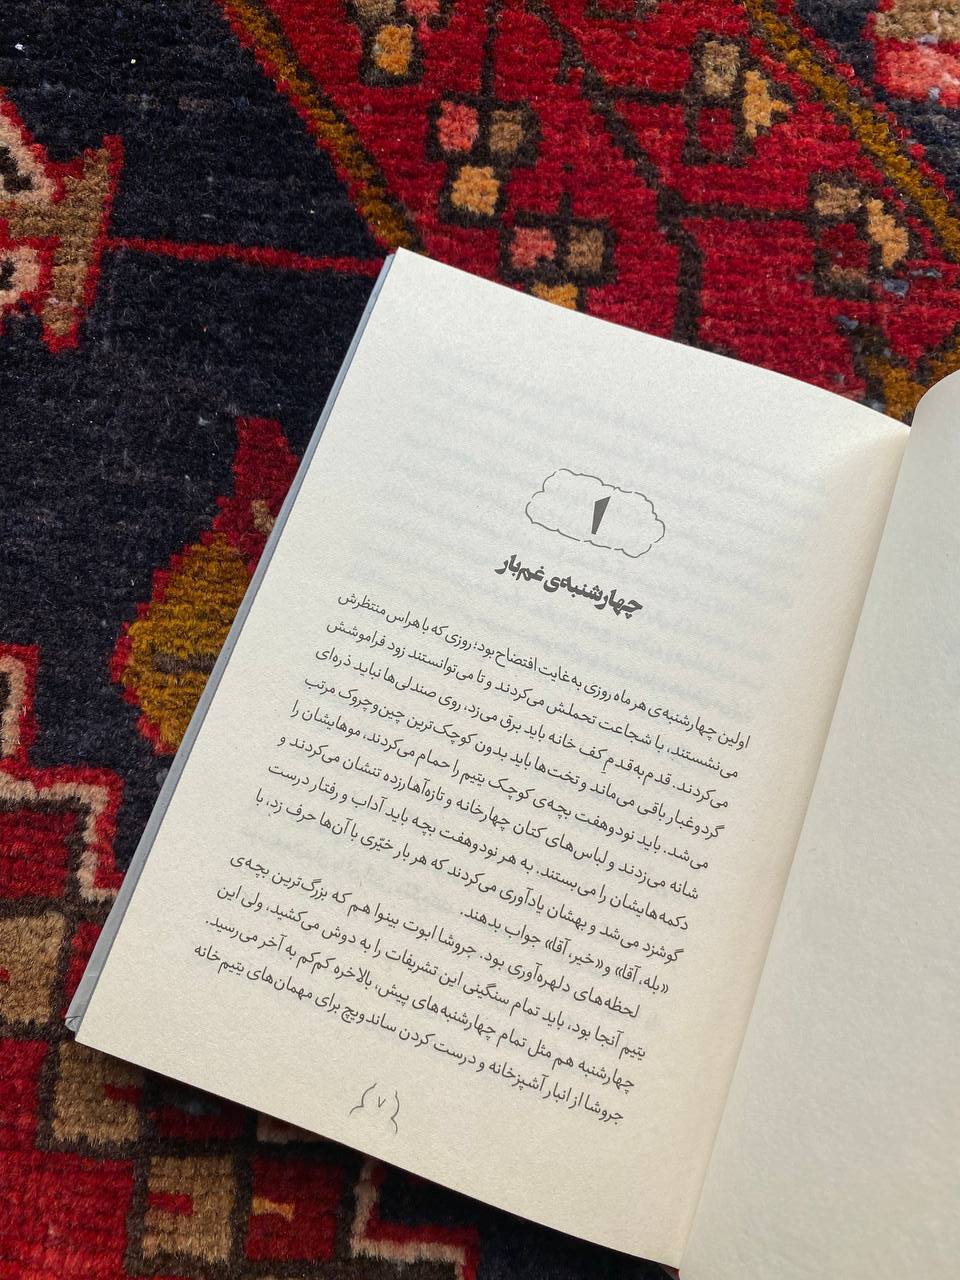 ۱
چهارشنبه‌ی غم‌بار
اولین چهارشنبه‌ی هر ماه روزی به غایت افتضاح بود؛ روزی که با هراس منتظرش
می‌نشستند، با شجاعت تحملش می‌کردند و تا می‌توانستند زود فراموشش
می‌کردند. قدم‌به‌قدمِ کف خانه باید برق می‌زد، روی صندلی‌ها نباید ذره‌ای
گردوغبار باقی می‌ماند و تخت‌ها باید بدون کوچک‌ترین چین‌وچروک مرتب
می‌شد. باید نودوهفت بچه‌ی کوچک یتیم را حمام می‌کردند، موهایشان را
شانه می‌زدند و لباس‌های کتان چهارخانه و تازه‌آهارزده تنشان می‌کردند و
دکمه‌هایشان را می‌بستند. به هر نودوهفت بچه باید آداب و رفتار درست
گوشزد می‌شد و بهشان یادآوری می‌کردند که هر بار خیّری با آن‌ها حرف زد، با
«بله، آقا» و «خیر، آقا» جواب بدهند.
لحظه‌های دلهره‌آوری بود. جروشا ابوت بینوا هم که بزرگ‌ترین بچه‌ی
یتیم آنجا بود، باید تمام سنگینی این تشریفات را به دوش می‌کشید، ولی این
چهارشنبه هم مثل تمام چهارشنبه‌های پیش، بالاخره کم‌کم به آخر می‌رسید.
جروشا از انبار آشپزخانه و درست کردن ساندویچ برای مهمان‌های یتیم‌خانه
۷